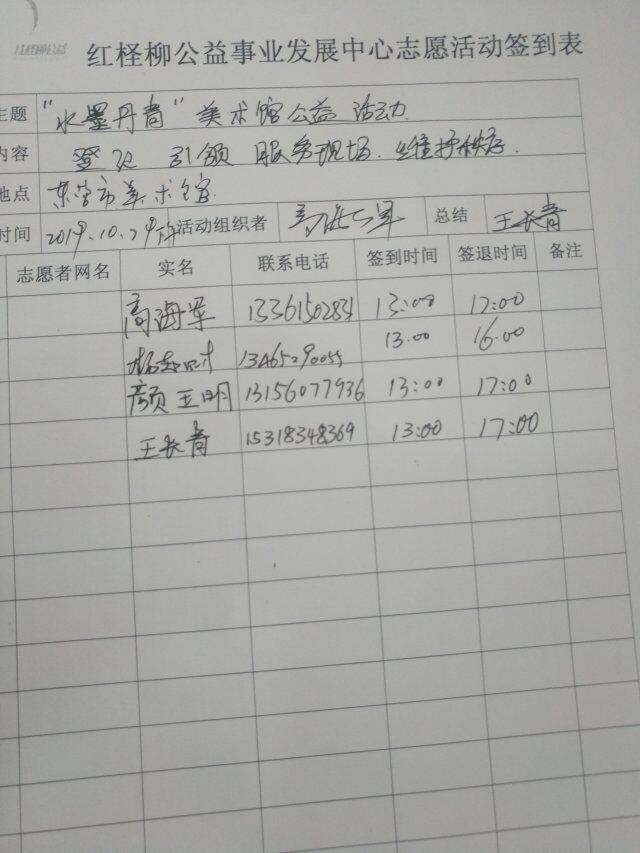 红柽柳公益事业发展中心志愿活动签到表
主题 “水墨丹青”美术馆公益活动
内容 登记 引领 服务现场.维持秩序.
地点 东营市美术馆
时间 2019.10.29 活动组织者 高海军 总结 王长青
志愿者网名 实名 联系电话 签到时间 签退时间 备注
高海军 13361502831 13:00 17:00
13465290055 13.00 16.00
颜玉明 13156077936 13:00 17:00
王长青 15318348369 13:00 17:00